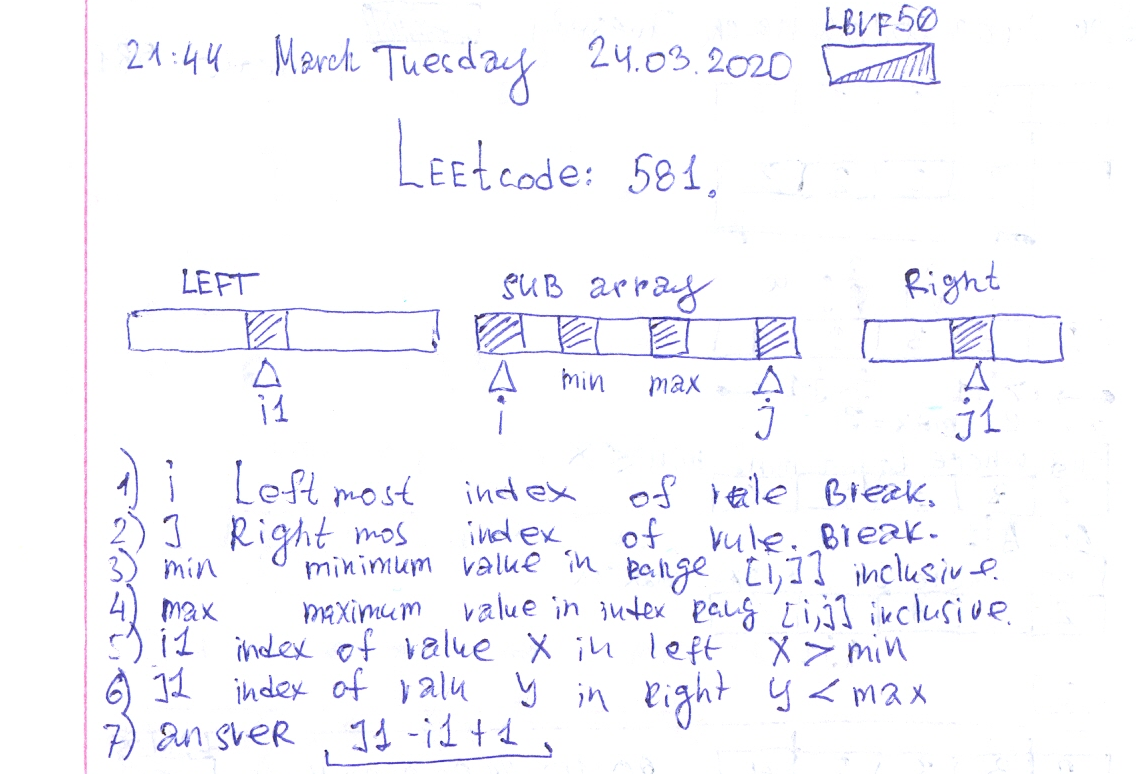 LBVF50
21:44 March Tuesday 24.03.2020
LEEtcode: 581.
LEFT SUB array Right
min max
i1 i j j1
1) i Left most index of rule Break.
2) J Right mos index of rule. Break.
3) min minimum value in Range [i,J] inclusive.
4) max maximum value in index Rang [i,j] inclusive.
5) i1 index of value X in left X > min
6) J1 index of valu y in Right y < max
7) answer J1 - i1 + 1.